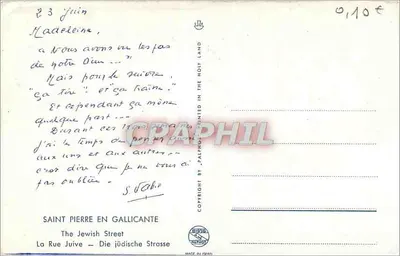 23 Juin
0,10€
Madeleine,
"Nous avons vu les pas
de notre Dieu..."
Mais pour le suivre,
"ça tire" et "ça traîne."
Et cependant ça mène
quelque part...
Durant ces
j'ai le temps de penser
aux uns et aux autres...
dire que je ne vous ai
pas oubliée.
CPRAPHIL
COPYRIGHT BY "PALPHOT" PRINTED IN THE HOLY LAND
SAINT PIERRE EN GALLICANTE
The Jewish Street
La Rue Juive — Die jüdische Strasse